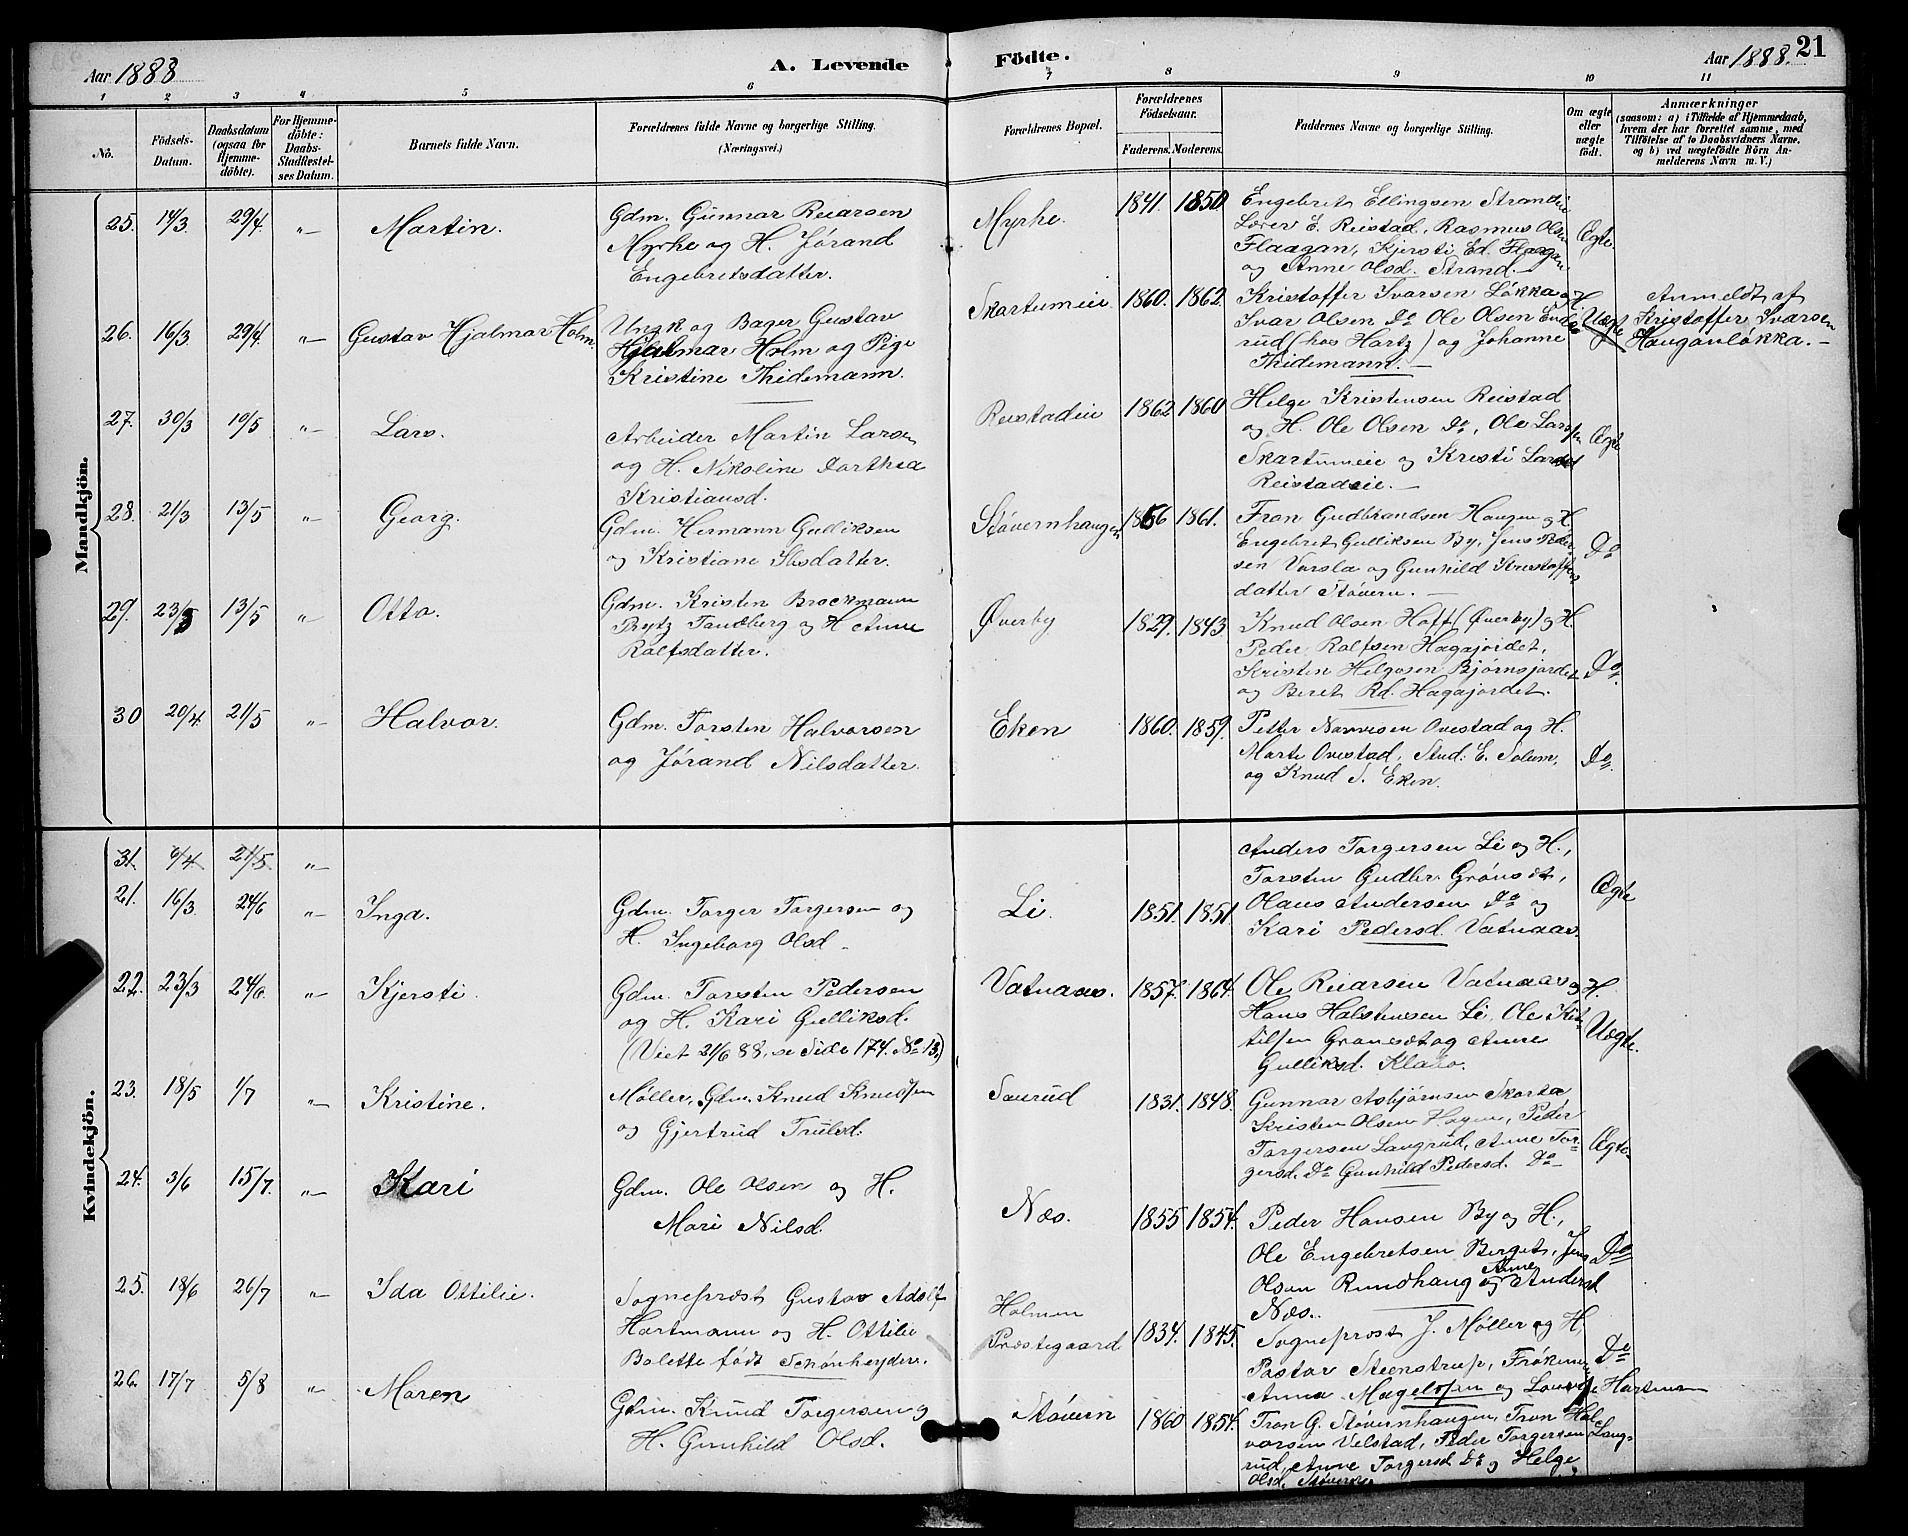 21
Aar 1888
A. Levende Födte.
Aar 1888.
1 2 3 4 5 6 7 8 9 10 11
No.
Födsels-
Datum.
Daabsdatum
(ogsaa for
Hjemme-
döbte).
For Hjemme-
döbte:
Daabs-
Stadfestel-
ses Datum.
Barnets fulde Navn.
Forældrenes fulde Navne og borgerlige Stilling.
(Næringsvei.)
Forældrenes Bopæl.
Forældrenes
Födselsaar.
Faderens. Moderens.
Faddernes Navne og borgerlige Stilling.
Om ægte
eller
uægte
födt.
Anmærkninger
(saasom: a) i Tilfælde af Hjemmedaab,
hvem der har forrettet samme, med
Tilföielse af to Daabsvidners Navne,
og b) ved uægtefödte Börn An-
melderens Navn m. V.)
Mandkjön.
25. 14/3 29/4. " Martin.
Gdm. Gunnar Reiarsen
Myrhe og H. Jørand
Engebretsdatter.
Myrhe. 1841. 1850
Engebret Ellingsen Strandeie
Lærer E. Reistad, Rasmus Olsen
Flaagan, Kjersti Ed. Flaagan
og Anne Olsd. Strand.
Ægte.
26. 16/3 29/4. " Gustav Hjalmar Holm.
Ungk og Bager Gustav
Hjalmar Holm og Pige
Kristine Thidemann.
Skartumeie 1860. 1862.
Kristoffer Ivarsen Løkka og H
Ivar Olsen Do Ole Olsen
rud (hos Hartz) og Johanne
Thidemann.
Uægte
Anmeldt af
Kristoffer Ivarsen
Hauganløkka.
27. 30/3 10/5 " Lars.
Arbeider Martin Larsen
og H. Nikoline Dorthea
Kristiansd.
Reistadeie 1862 1860
Helge Kristensen Reistad
og H. Ole Olsen Do, Ole Larssen
Skartumeie og Kristi Larsd
Reistadeie.
Ægte
28. 21/3 13/5 " Georg.
Gdm. Hermann Gulliksen
og Kristiane Ilsdatter.
Støvernhaugen 1856 1861.
Tron Gudbrandsen Haugen og H.
Engebret Gulliksen By, Jens Peder
sen Varsla og Gunhild Kristoffers
datter Støvern.
Do
29. 23/3 13/5 " Otto.
Gdm. Kristen Brockmann
Brytz Tandberg og H Anne
Rolfsdatter.
Øverby 1829. 1843
Knud Olsen Hoff (Øverby) og H.
Peder Rolfsen Hagajordet,
Kristen Helgesen Bjørnsjordet
og Beret Rd. Hagajordet.
Do.
30 20/4 21/5 " Halvor.
Gdm. Torsten Halvorsen
og Jørand Nilsdatter.
Eken 1860. 1859.
Petter Narvesen Ovestad og H.
Marte Ovestad, Stud: E. Solum,
og Knud S. Eken.
Do.
Kvindekjön.
31. 6/4 21/5 "
21. 16/3. 24/6 " Inga.
Gdm. Torger Torgersen og
H. Ingeborg Olsd
Li. 1851. 1851.
Anders Torgersen Li og H.,
Torsten Gudbr. Grønset,
Olaus Andersen Do og
Kari Pedersd. Vatnaas.
Ægte
22. 23/3 24/6. " Kjersti.
Gdm. Torsten Pedersen
og H. Kari Gulliksd.
(Viet 21/6 88, se Side 174. No 13.)
Vatnaas. 1857. 1864.
Ole Reiarsen Vatnaas og H.
Hans Halstensen Li, Ole Kit-
tilsen Grønset og Anne
Gulliksd. Kla
Uægte.
23. 18/5 1/7 " Kristine.
Møller, Gdm. Knud Knudsen
og Gjertrud Trulsd.
Saurud 1831. 1848.
Gunnar Asbjørnsen Skorta
Kristen Olsen Hagen, Peder
Torgersen Langrud, Anne Tor-
gersd. Do Gunhild Pedersd. Do
Ægte
24. 3/6 15/7. " Kari
Gdm. Ole Olsen og H.
Mari Nilsd.
Næs. 1855 1854.
Peder Hansen By og H.,
Ole Engebretsen Berget, Jens
Olsen Rundhaug og Anne Andersd
Næs.
Do
25. 18/6 26/7 " Ida Ottilie.
Sogneprest Gustav Adolf
Hartmann og H. Ottilie
Bolette født Schønheyder.
Holmen
Præstegaard 1834. 1845.
Sogneprost J. Møller og H,
Pastor Steenstrup, Frøkenerne
Anna Magelssen og Lovise Hartman
Do
26. 17/7 5/8 " Maren
Gdm. Knud Torgersen og
H. Gunhild Olsd.
Støvern 1860 1854.
Tron G. Støvernhaugen, Tron Hal
vorsen Velstad, Peder Torgersen Lang-
rud, Anne Torgersd Do og Helge
Olsd. Støvern